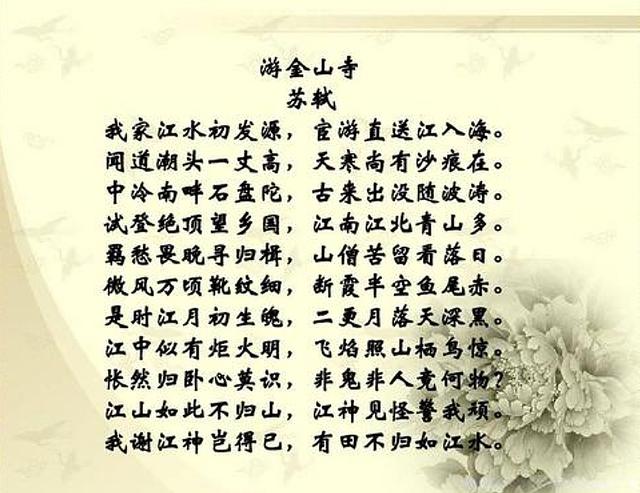 游金山寺
苏轼
我家江水初发源，宦游直送江入海。
闻道潮头一丈高，天寒尚有沙痕在。
中泠南畔石盘陀，古来出没随波涛。
试登绝顶望乡国，江南江北青山多。
羁愁畏晚寻归楫，山僧苦留看落日。
微风万顷靴纹细，断霞半空鱼尾赤。
是时江月初生魄，二更月落天深黑。
江中似有炬火明，飞焰照山栖鸟惊。
怅然归卧心莫识，非鬼非人竟何物？
江山如此不归山，江神见怪警我顽。
我谢江神岂得已，有田不归如江水。